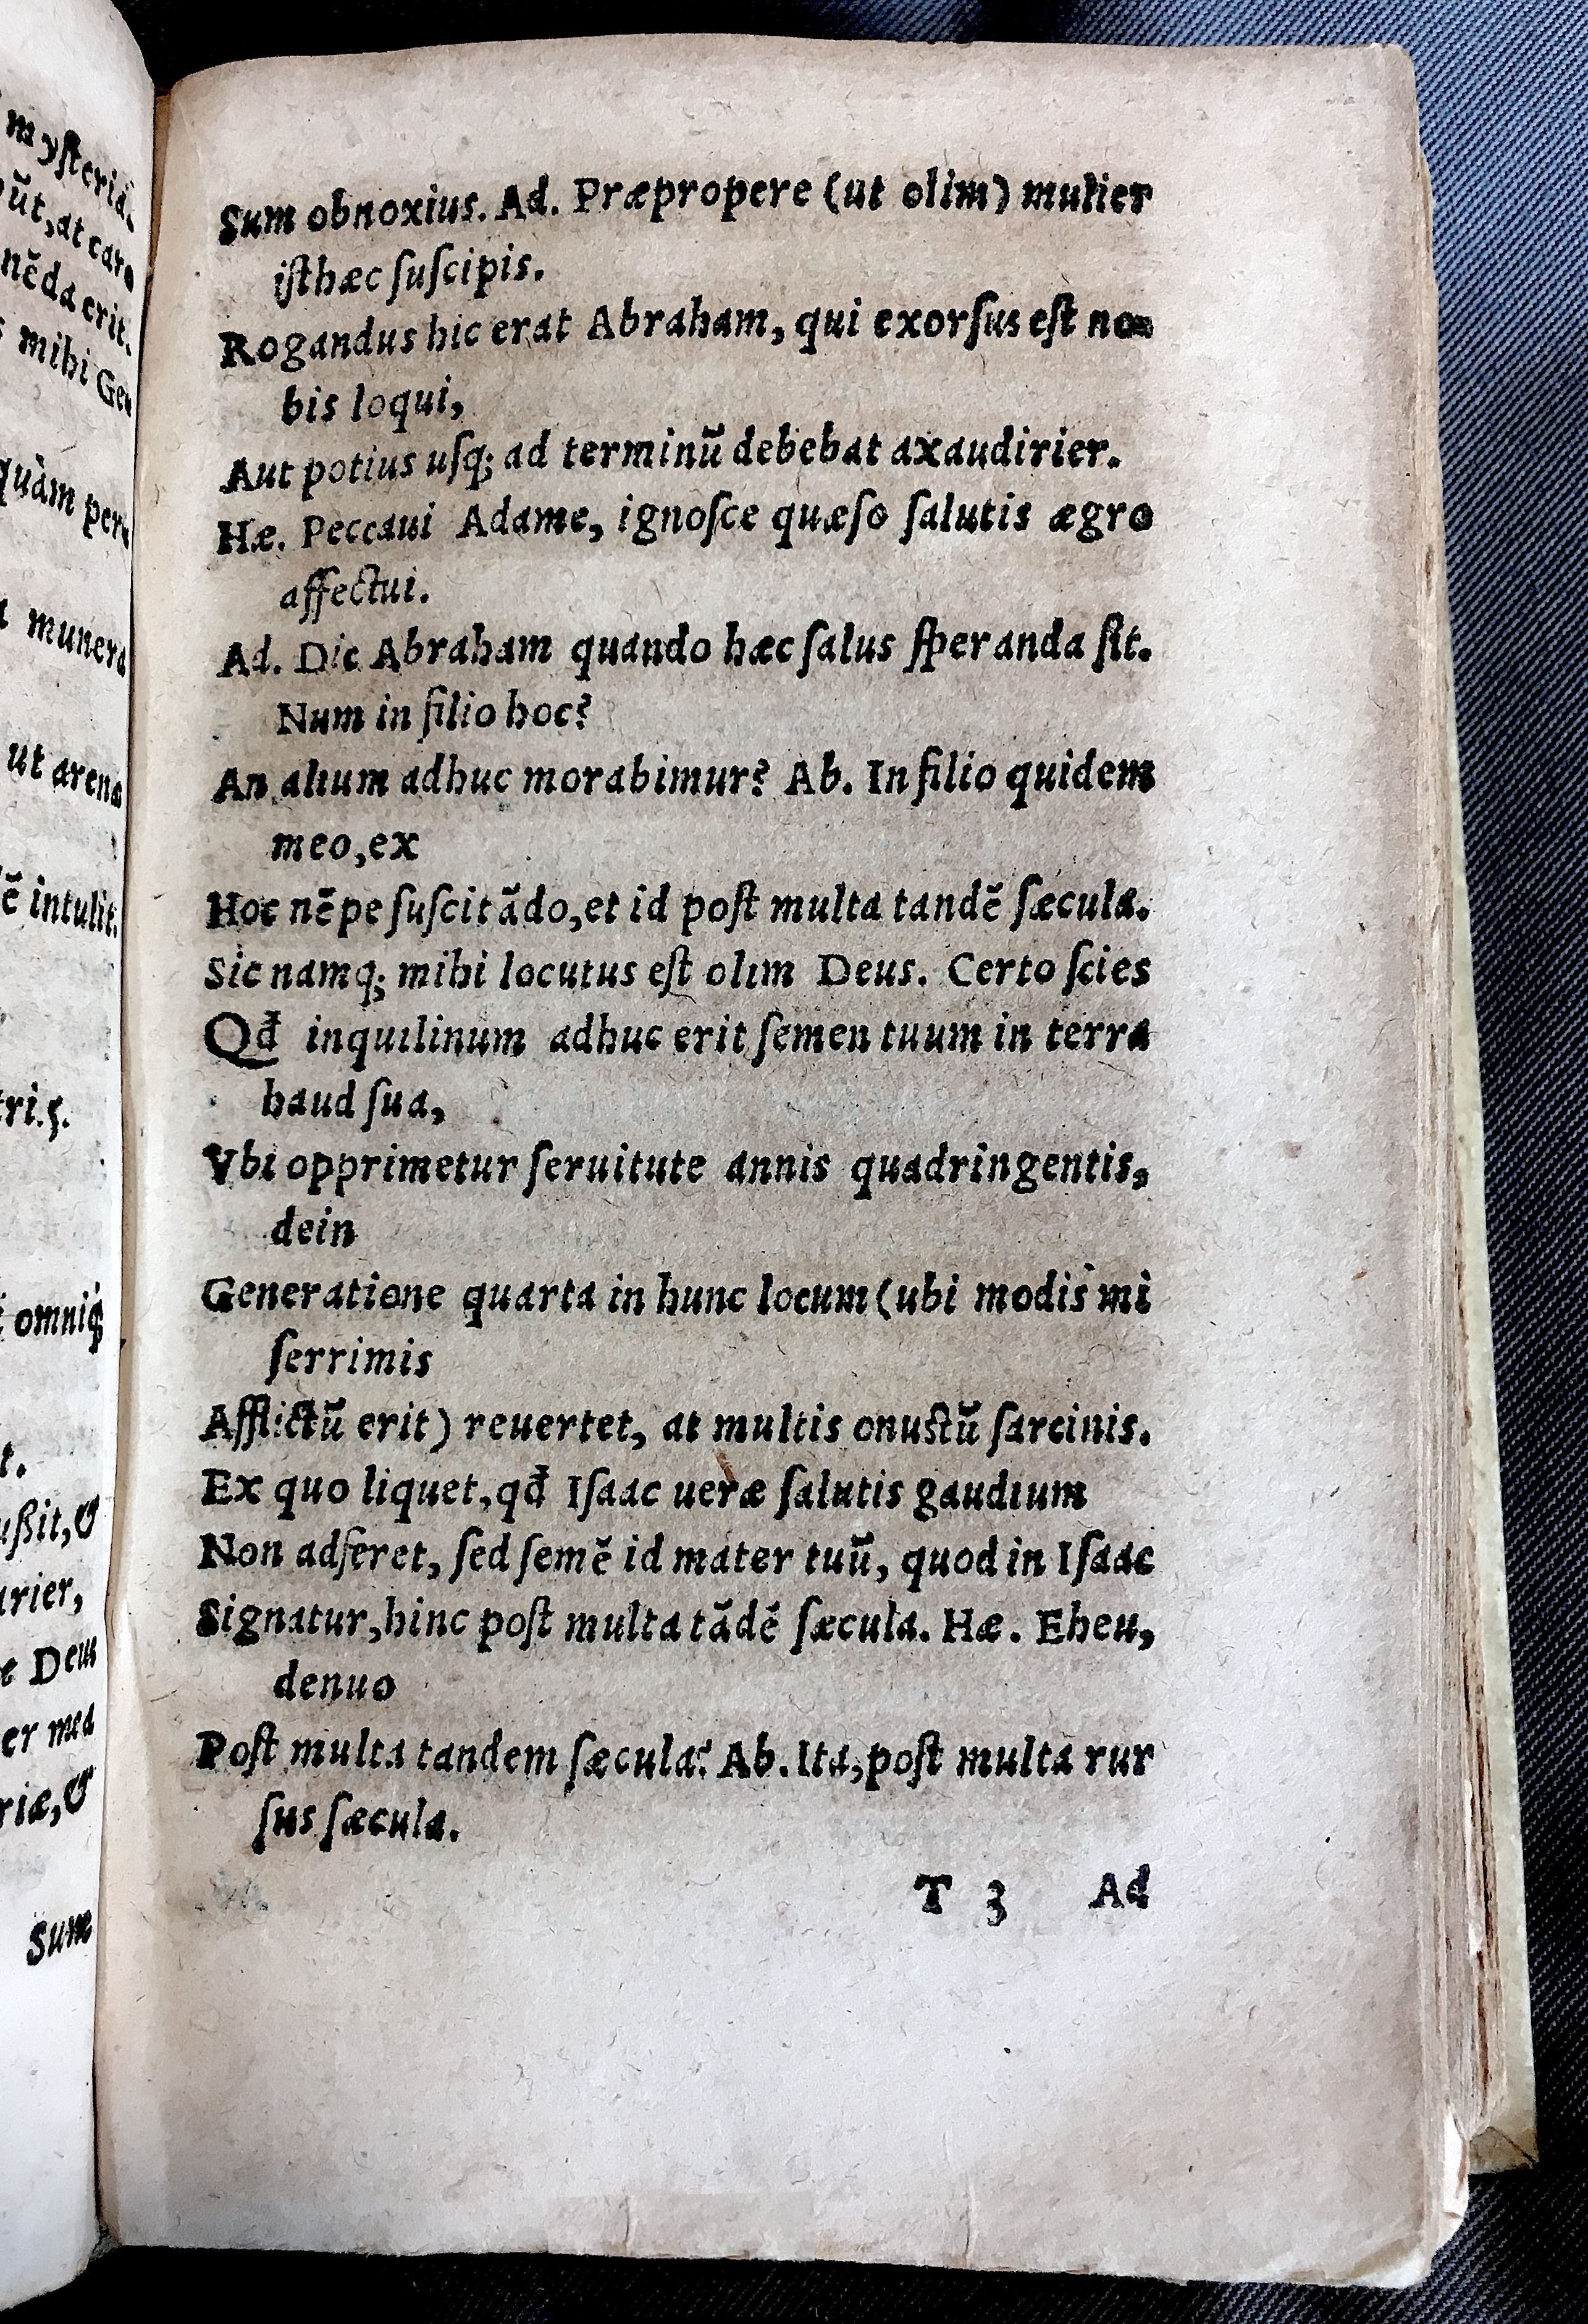 mysteriã.
ũt, at caro
nẽda erit.
mihi Gen
quàm per
munera
ut arena
ẽ intulit.
tri.ς.
omniq́;
t.
ußit, &
rier,
e Deus
er mea
riæ, &
Sum
Sum obnoxius. Ad. Præpropere (ut olim) mulier
iſthæc ſuſcipis.
Rogandus hic erat Abraham, qui exorſus eſt no=
bis loqui,
Aut potius uſq; ad terminũ debebat axaudirier.
Hæ. Peccaui Adame, ignoſce quæſo ſalutis ægro
affectui.
Ad. Dic Abraham quando hæc ſalus ſperanda ſit.
Num in filio hoc?
An alium adhuc morabimur? Ab. In filio quidem
meo, ex
Hoc nẽpe ſuſcitãdo, et id poſt multa tandẽ ſæcula.
Sic namq; mihi locutus eſt olim Deus. Certo ſcies
Qđ inquilinum adhuc erit ſemen tuum in terra
haud ſua,
Vbi opprimetur ſeruitute annis quadringentis,
dein
Generatione quarta in hunc locum (ubi modis mi
ſerrimis
Afflictũ erit) reuertet, at multis onuſtũ ſarcinis.
Ex quo liquet, qđ Iſaac ueræ ſalutis gaudium
Non adferet, ſed ſemẽ id mater tuũ, quod in Iſaac
Signatur, hinc poſt multa tãdẽ ſæcula. Hæ. Eheu,
denuo
Poſt multa tandem ſæcula? Ab. Ita, poſt multa rur
ſus ſæcula.
T 3 Ad